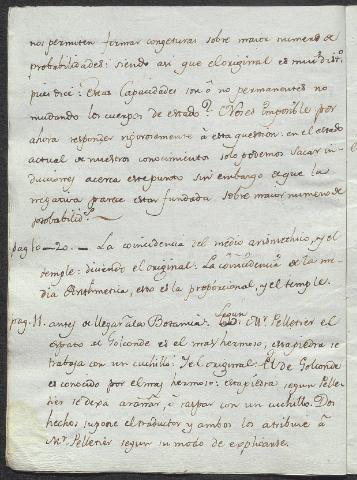 nos permiten formar congeturas sobre maior numero de
probabilidades: siendo asi que el original es mui dist.to
pues dice: Estas Capacidades son ó no permanentes no
mudando los cuerpos de estado? No es imposible por
ahora responder rigorosamente á esta question: en el estado
actual de nuestros conocimientos solo podemos sacar in
ducciones acerca este punto sin embargo de que la
negativa parece estar fundada sobre maior numero de
probabilid.s
pag 10 - 20. - La coincidencia del medio arismethico, y el
temple: diciendo el original: La coincidencia de la me
dia Arithmetica, esto es la proporcional, y el temple.
pag. 11. antes de llegar á la Botanica. Segun Mr. Pelletier el
espato de Golconde es el mas hermoso, esta piedra se
trabaja con un cuchillo: Y el original: El de Golconde
es conocido por el mas hermoso: esta piedra segun Pelle
tier se dexa arañar, ó raspar con un cuchillo. Dos
hechos supone el traductor y ambos los atribuie á
Mr. Pelletier segun su modo de explicarse.